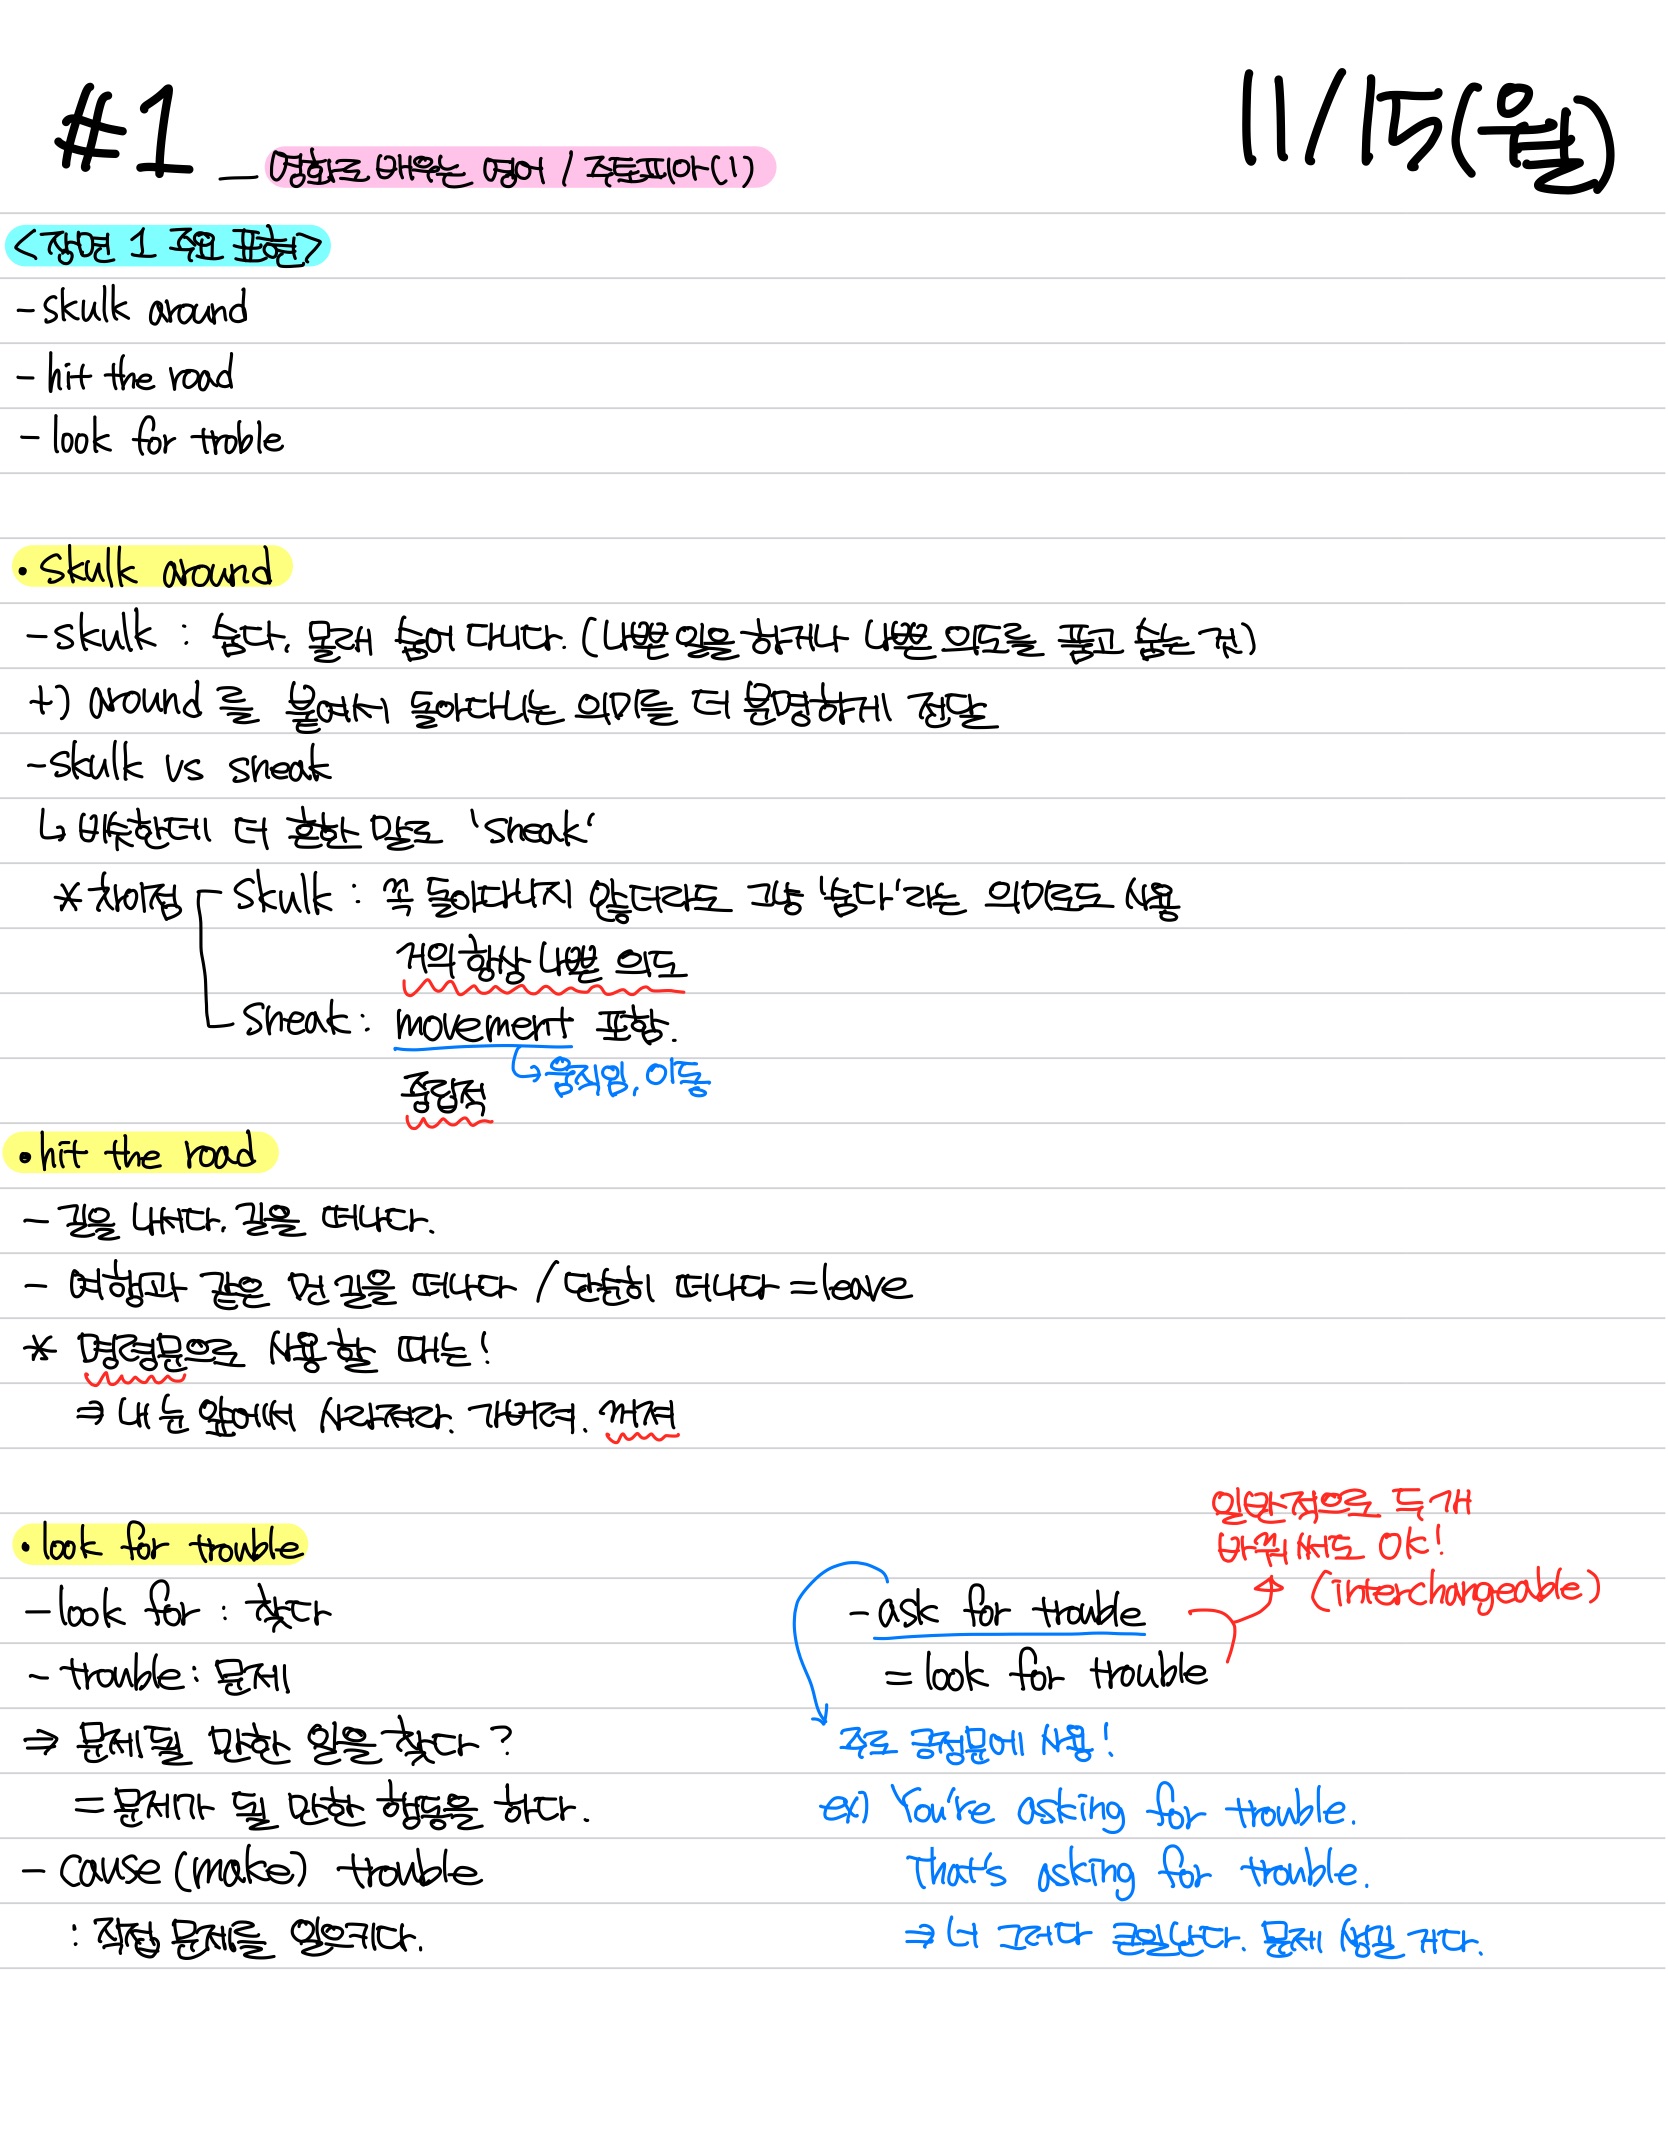 #1 _ 영화로 배우는 영어 / 주토피아(1)
11/15(월)
<장면 1 주요 표현>
- skulk around
- hit the road
- look for troble
• skulk around
- skulk : 숨다, 몰래 숨어 다니다. (나쁜 일을 하거나 나쁜 의도를 품고 숨는 것)
+) around 를 붙여서 돌아다니는 의미를 더 분명하게 전달
- skulk vs sneak
↳ 비슷한데 더 흔한 말로 'sneak'
* 차이점 skulk : 꼭 돌아다니지 않더라도 그냥 '숨다'라는 의미로도 사용
거의 항상 나쁜 의도
sneak : movement 포함.
↳ 움직임, 이동
중립적
• hit the road
- 길을 나서다. 길을 떠나다.
- 여행과 같은 먼 길을 떠나다 / 단순히 떠나다 = leave
* 명령문으로 사용할 때는!
⇒ 내 눈 앞에서 사라져라. 가버려. 꺼져
• look for trouble
- look for : 찾다
- trouble : 문제
⇒ 문제될 만한 일을 찾다?
= 문제가 될 만한 행동을 하다.
- cause (make) trouble
: 직접 문제를 일으키다.
일반적으로 두개
바꿔써도 OK!
(interchangeable)
- ask for trouble
= look for trouble
주로 긍정문에 사용!
ex) You're asking for trouble.
That's asking for trouble.
⇒ 너 그러다 큰일난다. 문제 생길 거다.